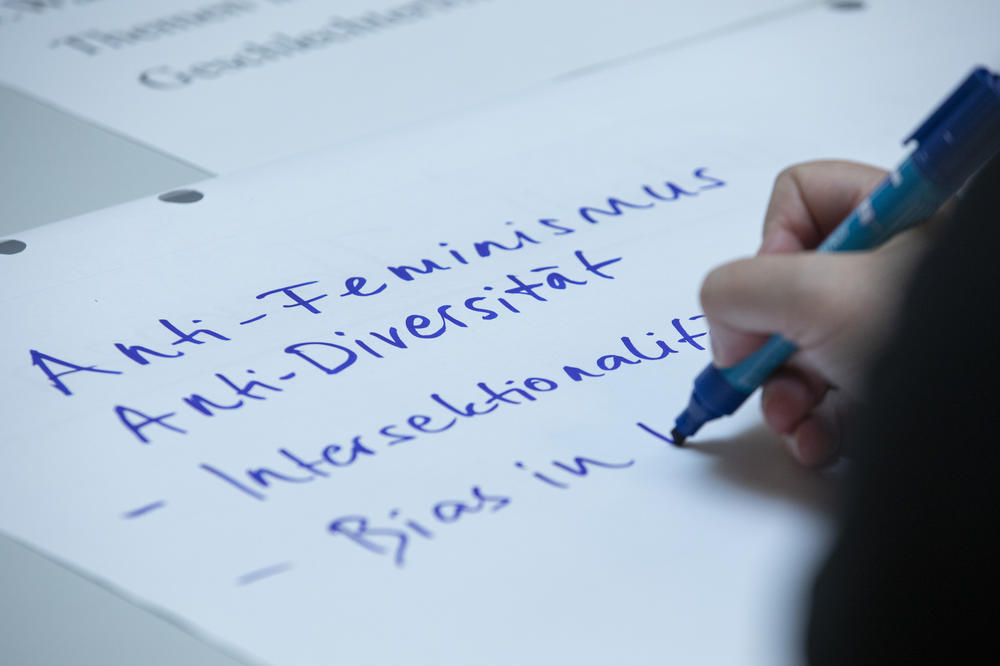 Themen
Anti-Feminismus
Anti-Diversität
- Intersektionalit
- Bias in